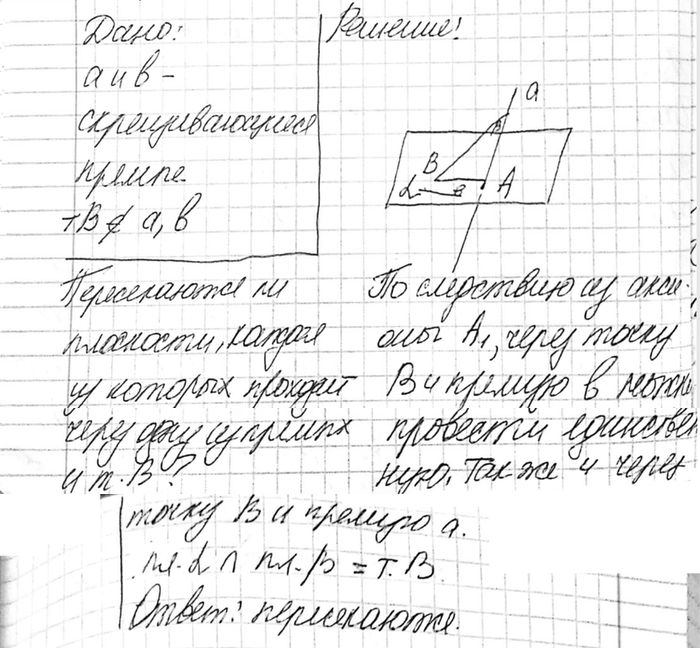 Дано:
а и в –
скрещивающиеся
прямые
т В ∉ а, в
Пересекаются ли
плоскости, каждая
из которых проходит
через одну из прямых
и т. В?
Решение!
а
β
В
А
α
в
По следствию из акси-
омы А₁, через точку
В и прямую в можно
провести единствен
ную. Так же и через
точку В и прямую а.
пл. α ∩ пл. β = т. В
Ответ: пересекаются.